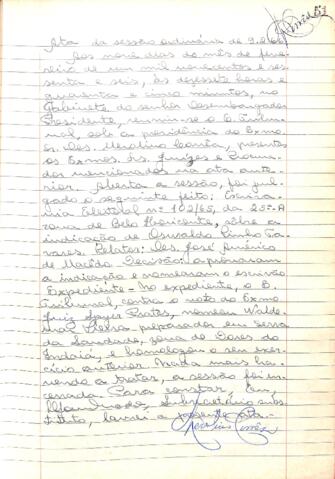 51
Ata da sessão ordinária de 9.2.66
Aos nove dias do mês de feve-
reiro de um mil novecentos e ses-
senta e seis, às dezessete horas e
quarenta e cinco minutos, no
Gabinete do senhor Desembargador
Presidente, reuniu-se o E. Tribu-
nal, sob a presidência do Exmo.
Des. Merolino Corrêa, presentes
os Exmos. Srs. Juízes e Procura-
dor mencionados na ata ante-
rior. Aberta a sessão, foi jul-
gado o seguinte feito: Escriva-
nia Eleitoral nº 102/65, da 25ª-A
zona de Belo Horizonte, sôbre a
indicação de Oswaldo Pinho Ta-
vares. Relator: Des. José Américo
de Macêdo. Decisão: aprovaram
a indicação e nomearam o escrivão
Expediente - No expediente, o E.
Tribunal, contra o voto do Exmo
Juiz Sayer Prates, nomeou Walde-
mar preparador em Serra
da Saudade, zona de Dores do
Indaiá, e homologou o seu exer-
cício anterior. Nada mais ha-
vendo a tratar, a sessão foi en-
cerrada. Para constar, Eu,
Subsecretário subs-
tituto, lavrei a presente ata.